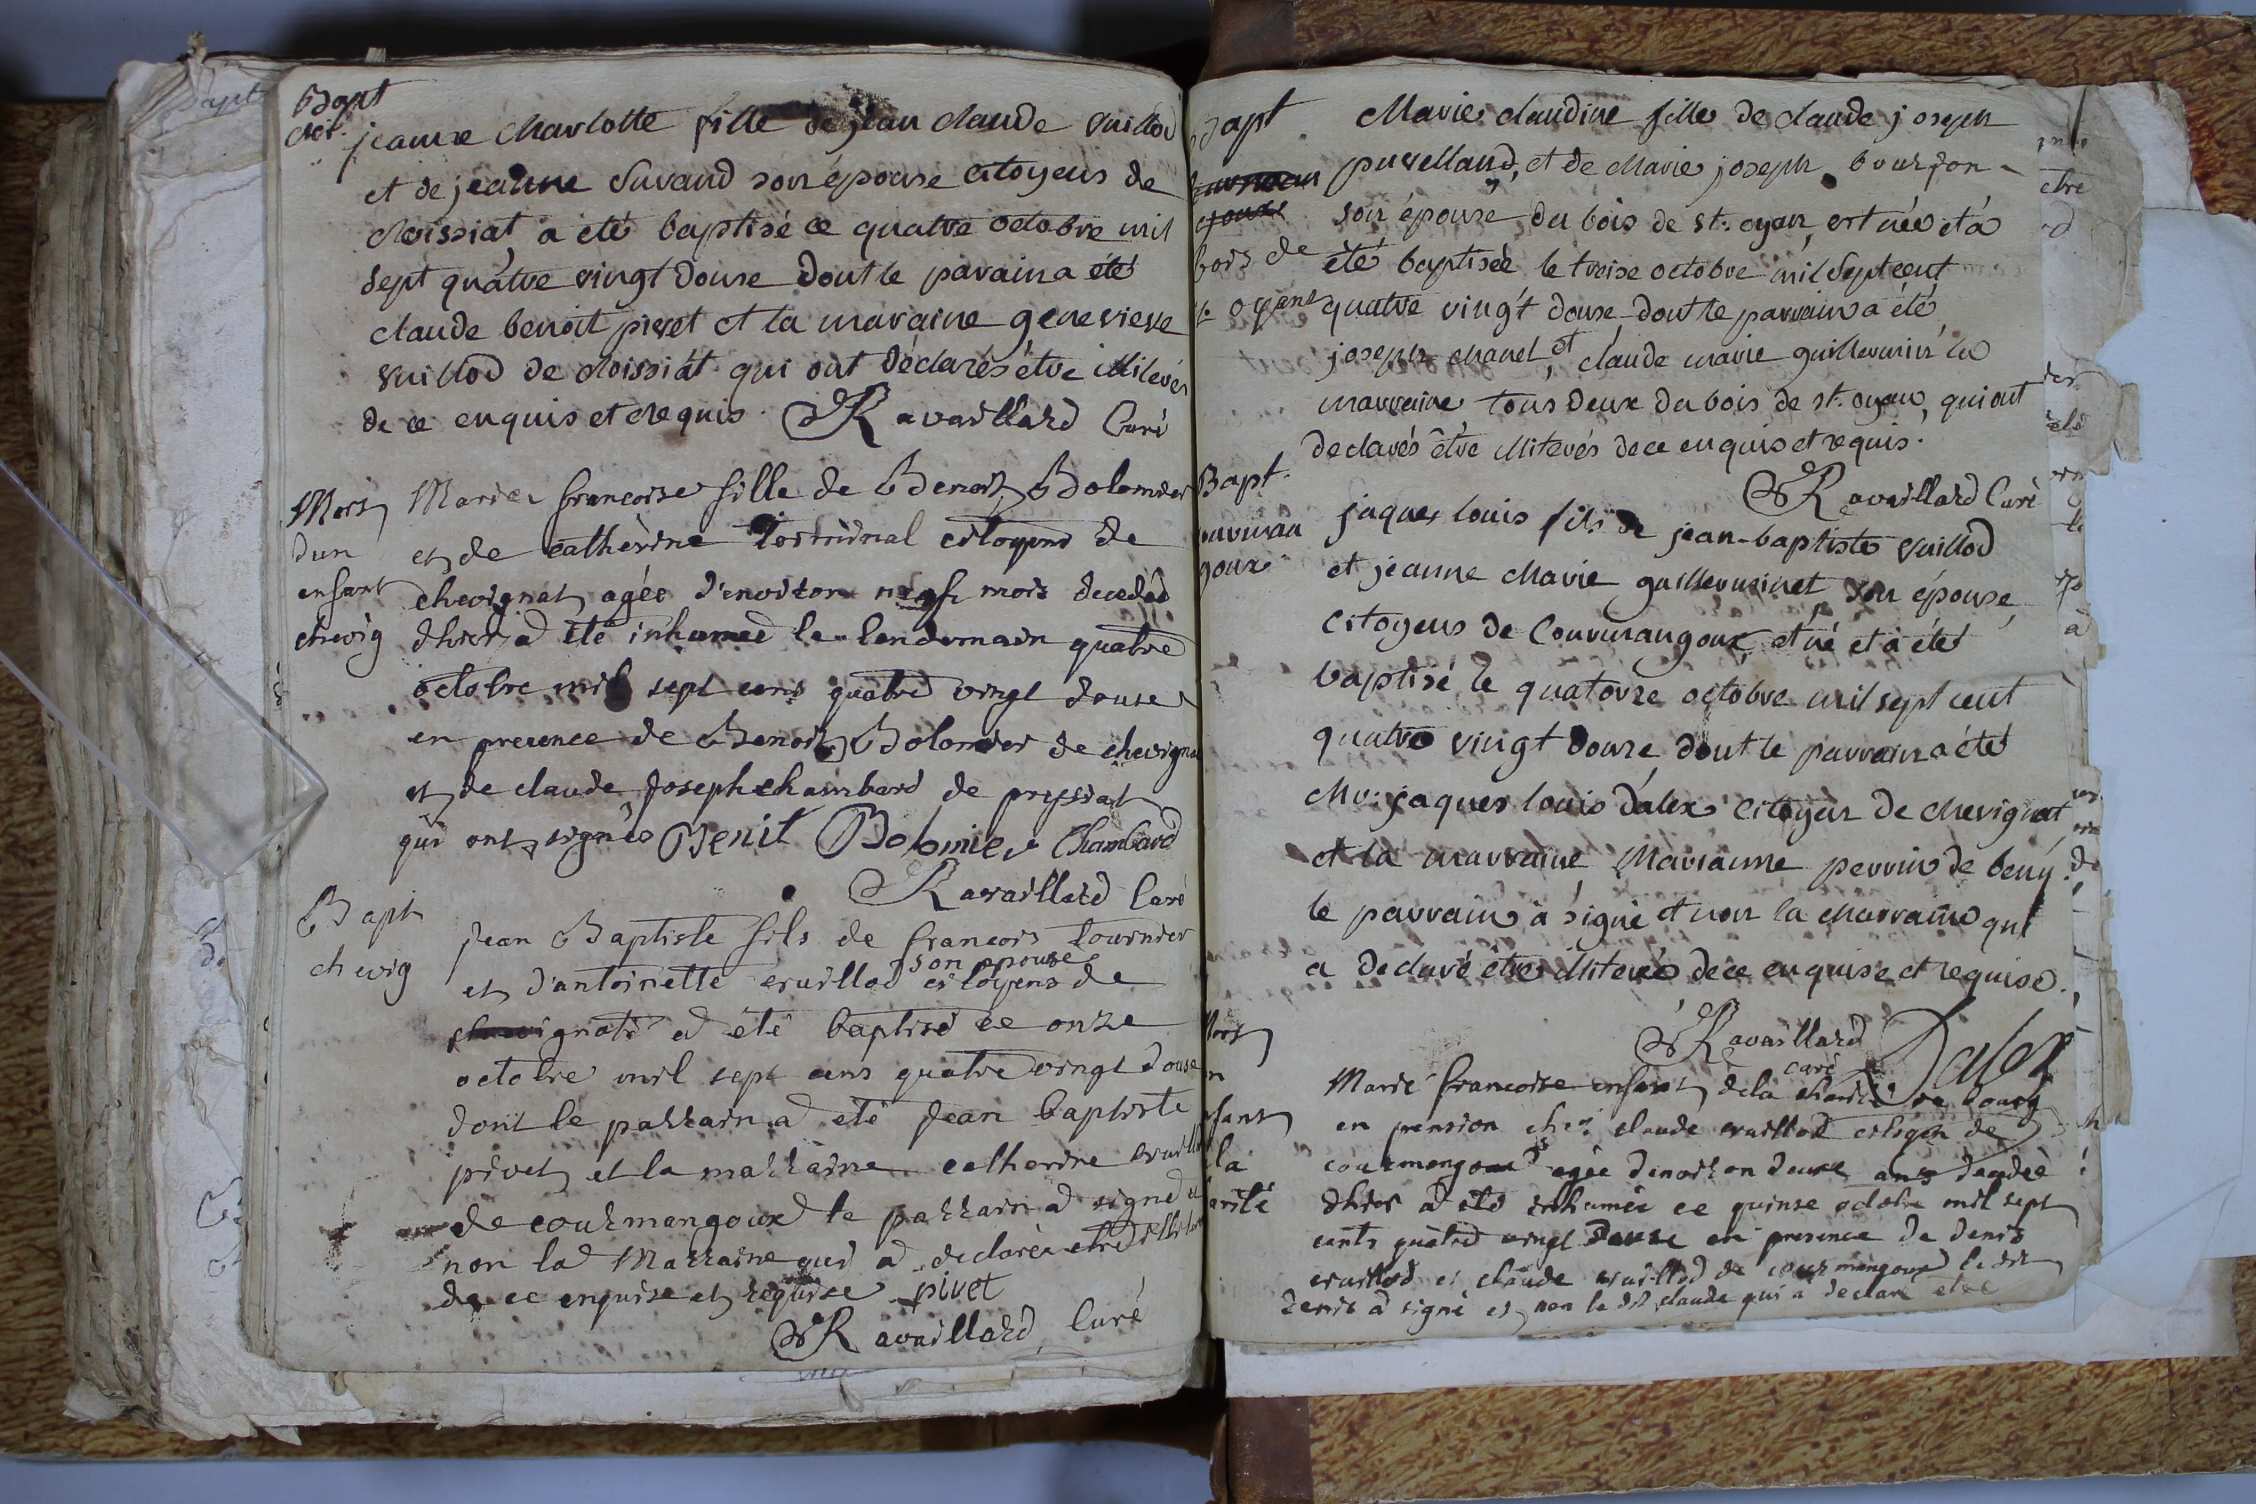 Bapt
jeanne charlotte fille de jean claude vuillod
et de jeanne suraud son épouse citoyens de
cloissiat a été baptisé ce quatre octobre mil
sept quatre vingt douse dont le parain a été
claude benoit pivet et la maraine genevieve
vuillod de cloissiat qui ont déclarés étre illiterés
de ce enquis et requis. Ravaillard Curé
Mort
dun
enfant
chevig
Marie francoise fille de Benoit Bolomier
et de catherine citoyens de
chevignat agée d'environ neuf mois decedée
dhier a été inhumée le lendemain quatre
octobre mil sept cens quatre vingt douse
en presence de Benoit Bolomier de chevigna
et de claude joseph chambard de pressiat
qui ont signés Benit Bolomier Chambard
Ravaillard Curé
Bapt
chevig
Jean Baptiste fils de francois tournier
son epouse
et d'antoinette vuillod citoyens de
chevignat a été baptisé ce onze
octobre mil sept cens quatre vingt douse
dont le parrain a été Jean baptiste
pivet et la marraine catherine vuillod
de courmangoux le parrain a signé et
non la Marraine qui a declarée etre
de ce enquise et requise pivet
Ravaillard Curé
Bapt
bois de
st oyant
Marie claudine fille de claude joseph
puvelland, et de Marie joseph bourjon
son épouse du bois de st. oyan, est née et a
été baptisée le treise octobre mil sept cent
quatre vingt douse dont le parrain a été
joseph chanel, et claude marie guillermin la
marraine tous deux du bois de st. oyan, qui ont
declarés être illiterés de ce enquis et requis.
Ravaillard Curé
Bapt.
jaques louis fils de jean-baptiste vuillod
et jeanne Marie guillerminet son épouse
citoyens de Courmangoux, est né et a été
baptisé le quatorze octobre mil sept cent
quatre vingt douze dont le parrain a été
Mr. jaques louis dalex citoyen de chevignat
et la marraine Marianne perrin de beny.
le parrain a signé et non la Marraine qui
a declaré être illiterée de ce enquise et requise.
Ravaillard
curé
Dalex
Marie francoise enfant de la charité de bourg
en pension chez claude vuillod citoyen de
courmangoux agée denviron deux ans decedée
dhier a été inhumée ce quinse octobre mil sept
cents quatre vingt douse en presence de denis
vuillod et claude vuillod de courmangoux le dit
denis a signé et non le dit claude qui a declaré etre